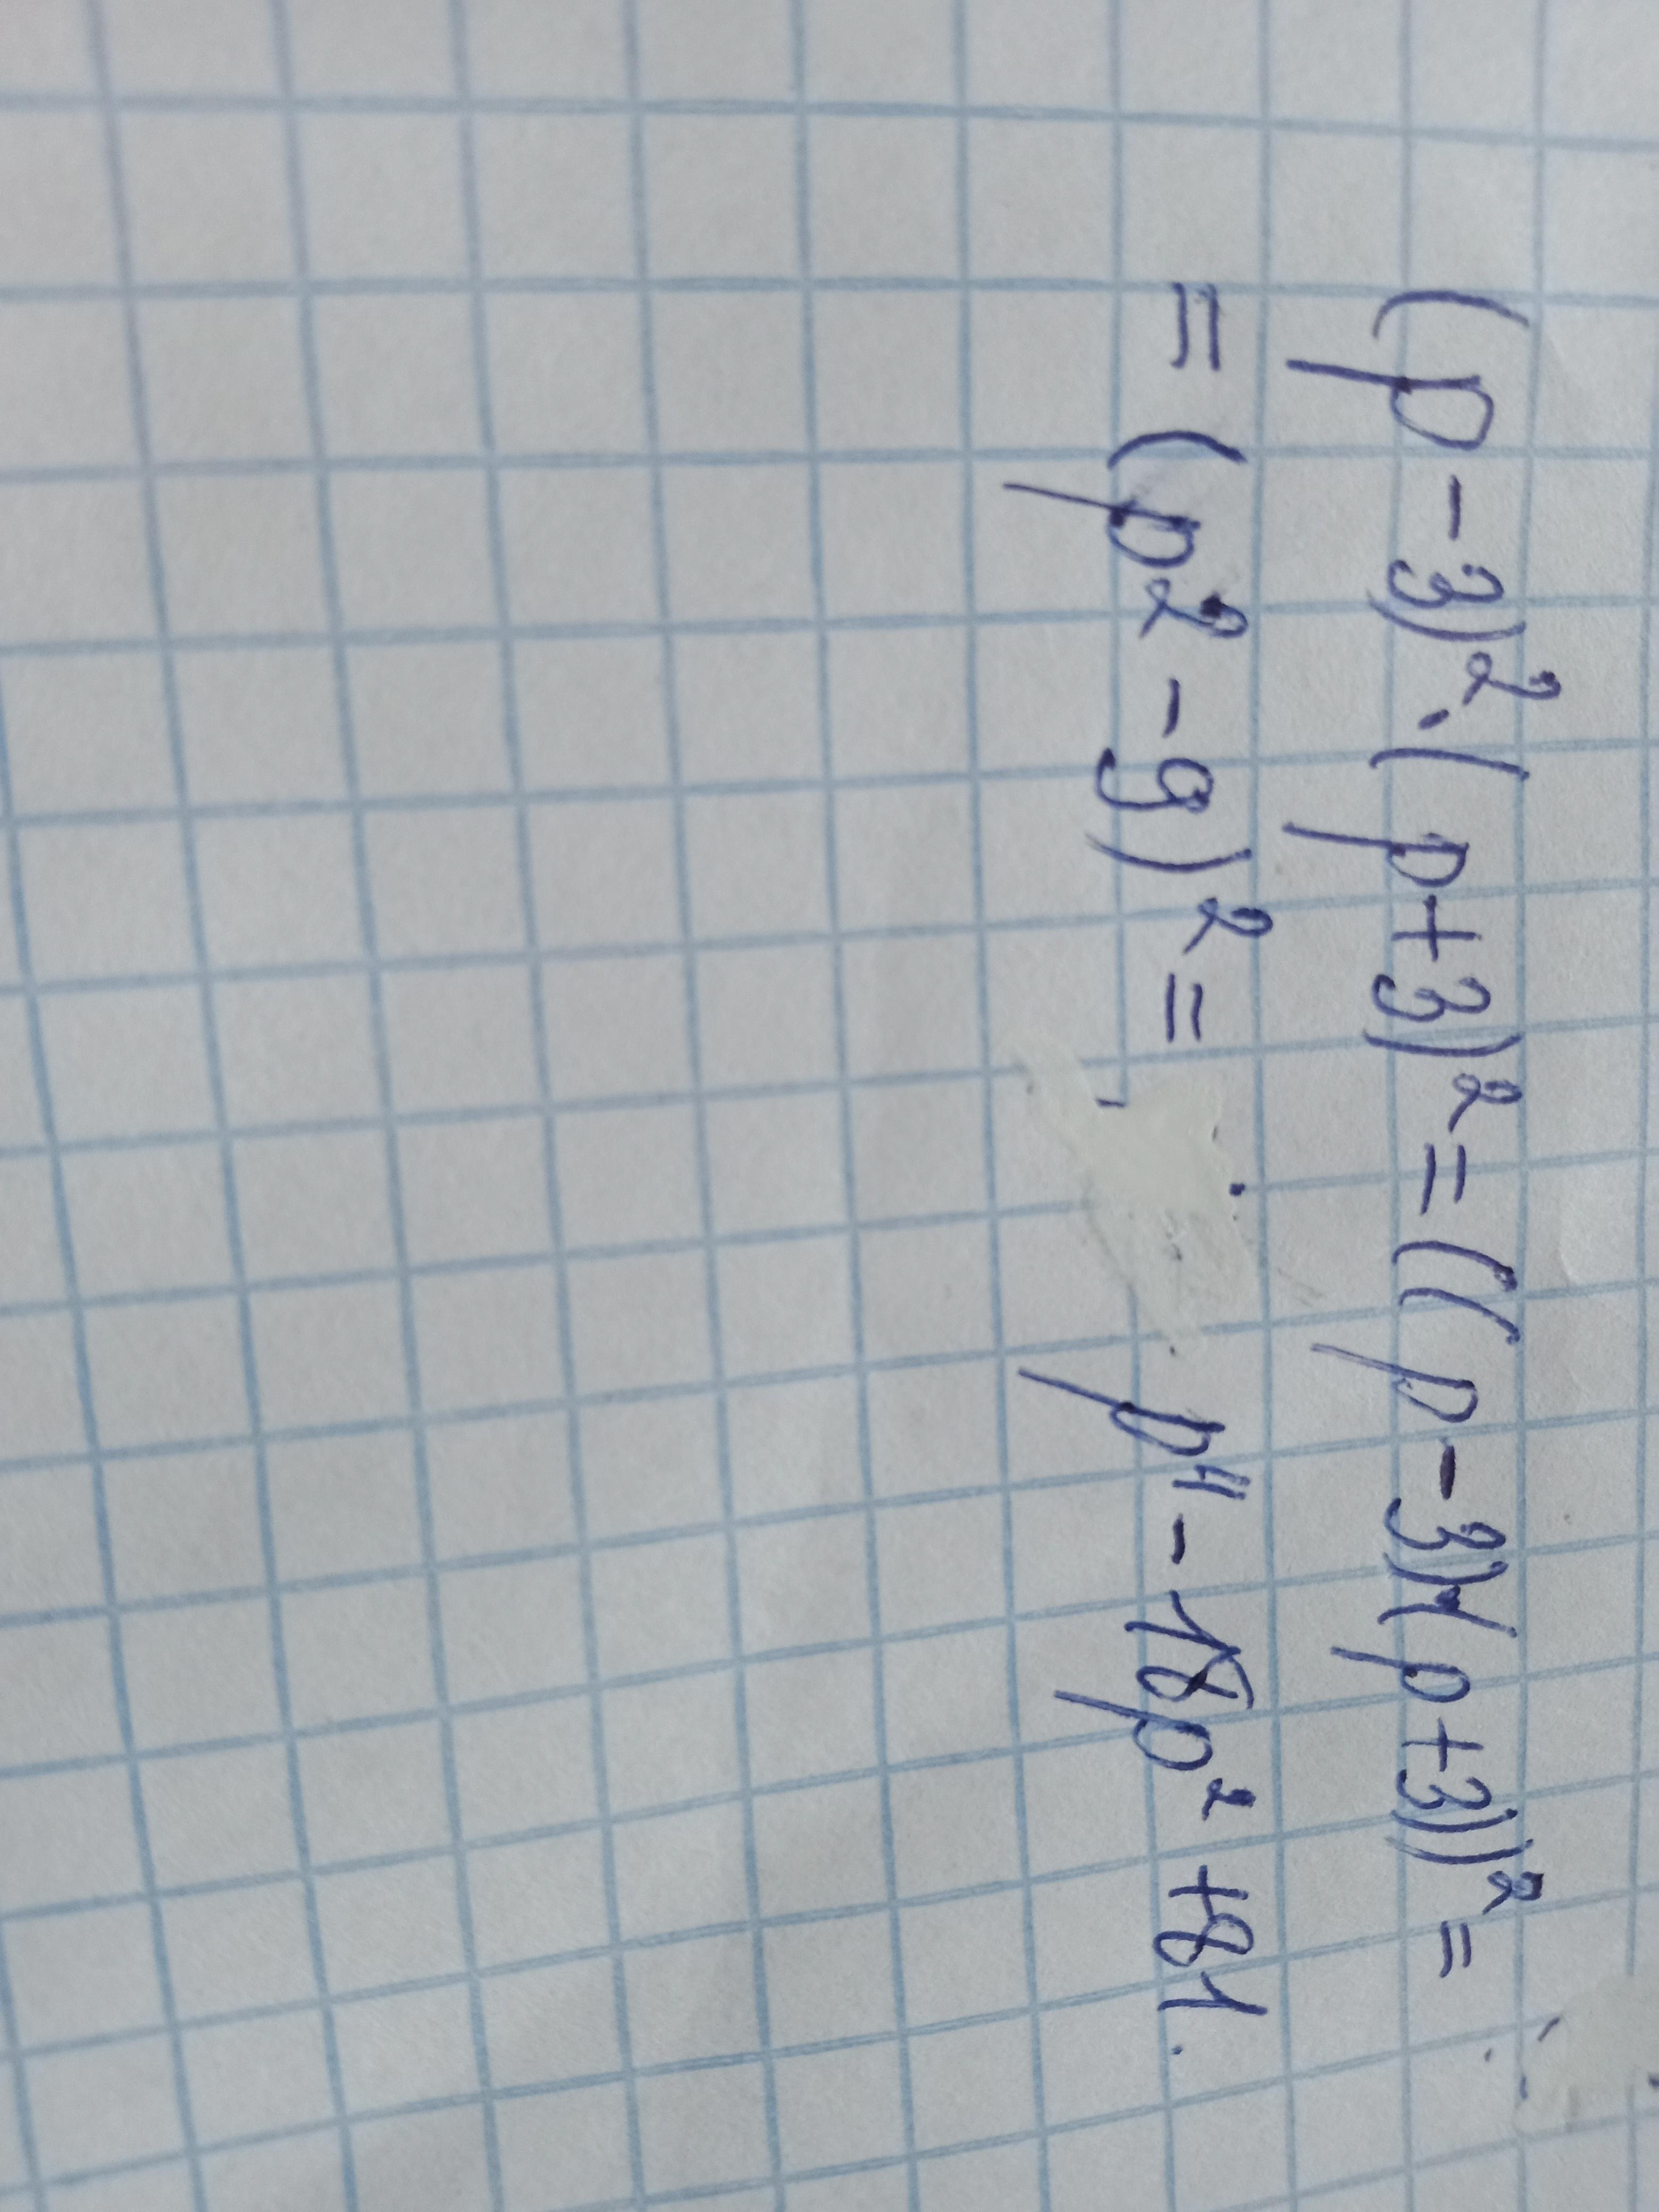 (p-3)²·(p+3)²=((p-3)(p+3))²=
=(p²-9)²= p⁴-18p²+81.